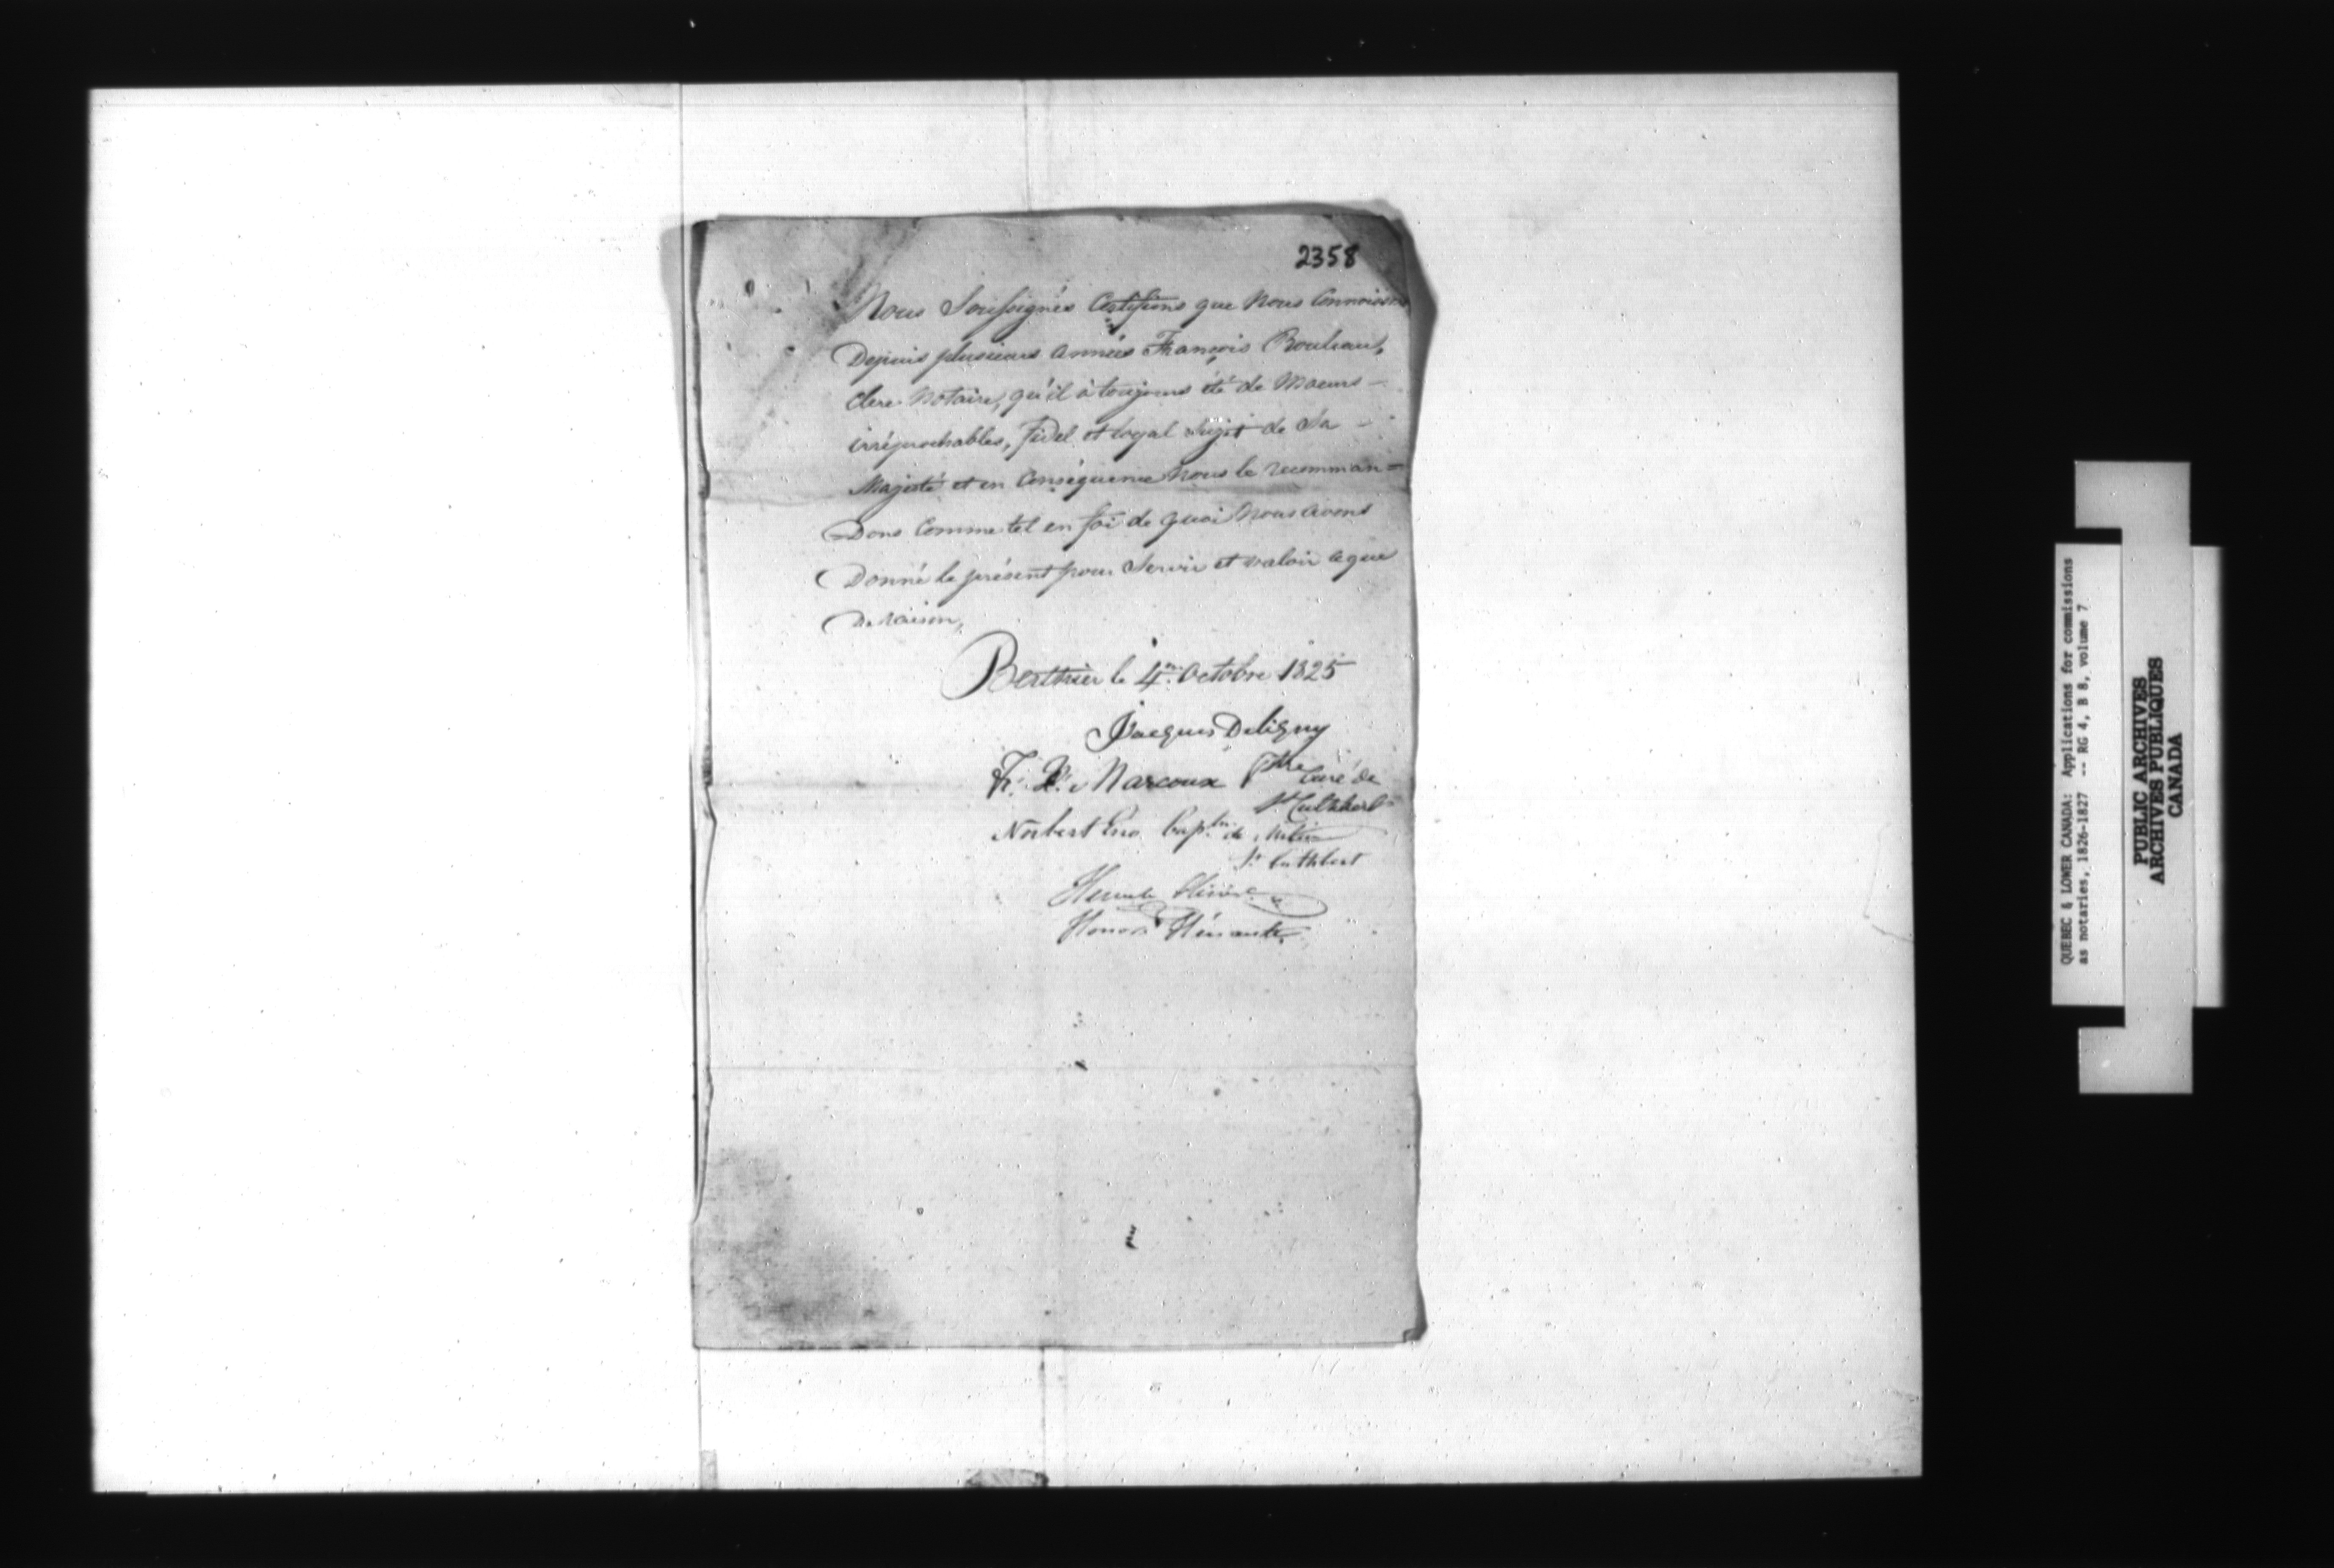 2358
Nous Soussignés Certifions que Nous Connoissons
Depuis plusieurs années François Rouleau,
Clerc Notaire, qu'il à toujours été de Mœurs —
irréprochables, fidel et loyal Sujet de Sa —
Majesté et en Conséquence Nous le recomman=
Dons Comme tel en foi de quoi Nous avons
Donné le présent pour Servir et valoir ce que
De raison,
Berthier le 4 Octobre 1825
Jacques Deligny
Marcoux Ptre Curé de
St Cuthbert
Norbert Eno Cap.tn de Milice
St Cuthbert
Honoré
QUEBEC & LOWER CANADA: Applications for commissions
as notaries, 1826-1827 -- RG 4, B 8, volume 7
PUBLIC ARCHIVES
ARCHIVES PUBLIQUES
CANADA